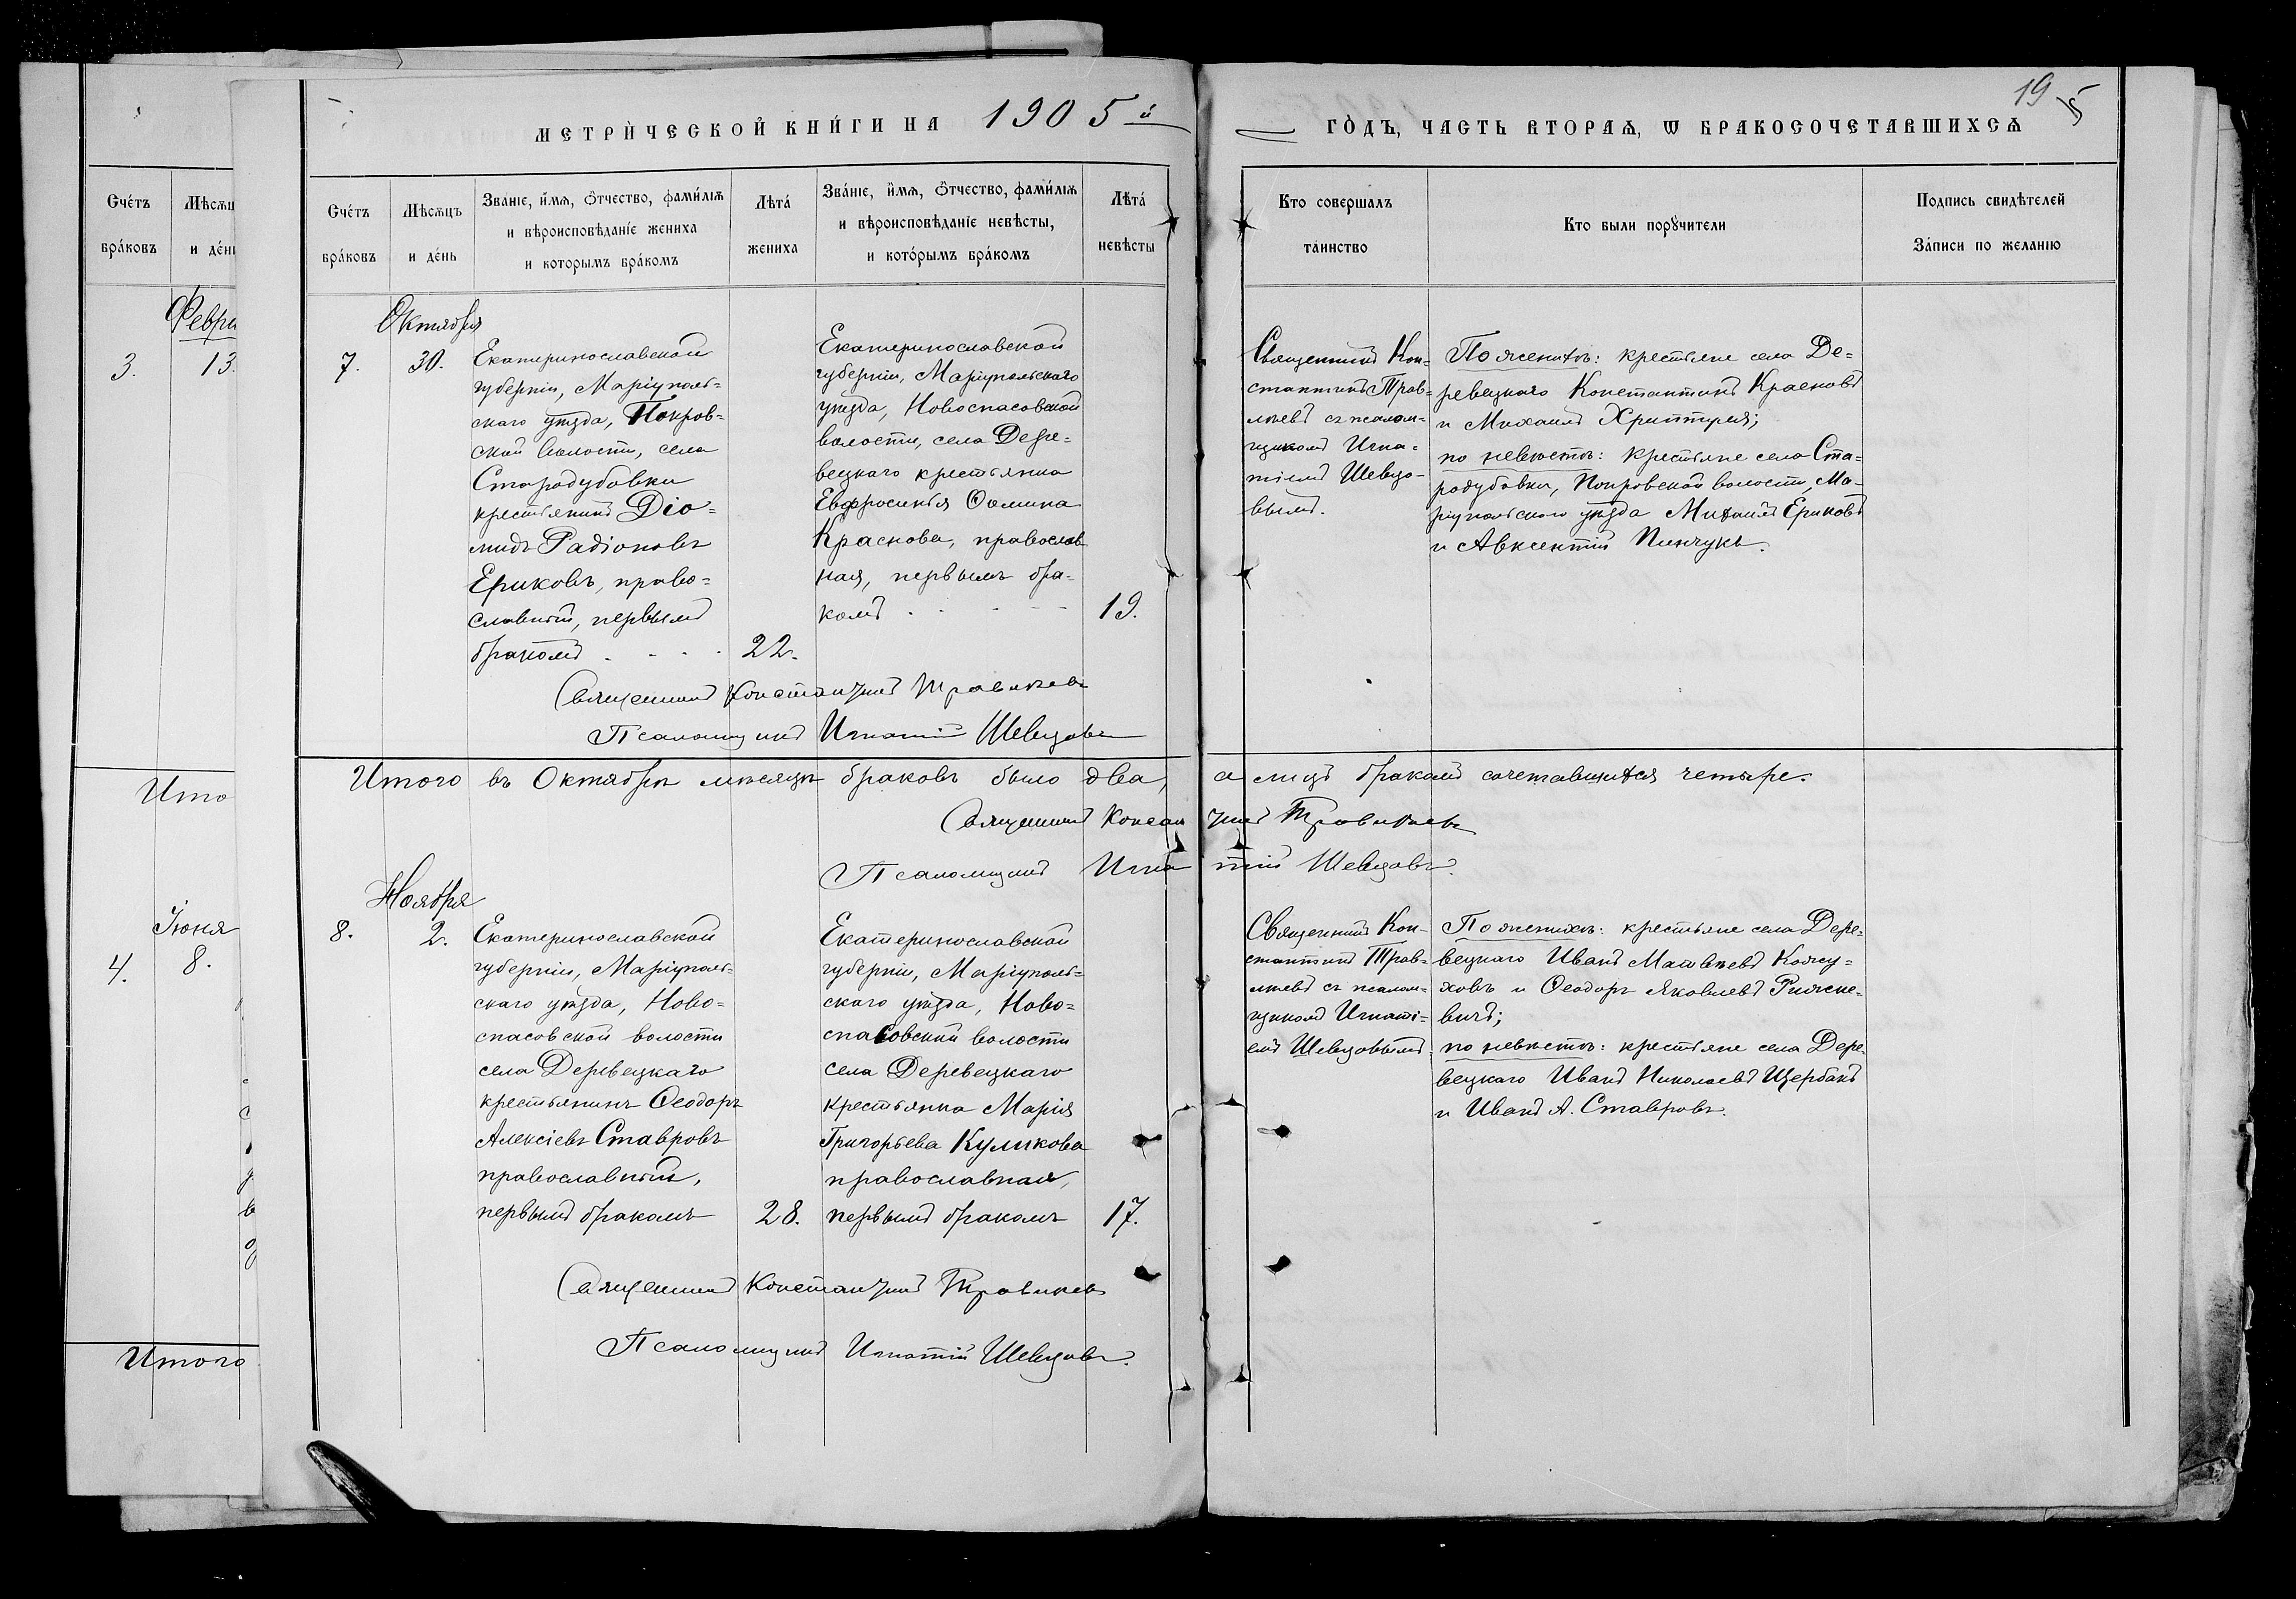 МЕТРИЧЕСКОЙ КНИГИ НА 1905й
ГОДЪ, ЧАСТЬ ВТОРАѦ, Ѡ БРАКОСОЧЕТАВШИХСѦ
19
5
Счетъ
браковъ
и
3.
Февра
13.
Ито
Іюня
4.
8.
Итого
Счетъ
браковъ
Мѣсѧцъ
и день
Званіе, имѧ, Ѻтчество, фамиліѧ
и вѣроисповѣданіе жениха
и которымъ бракомъ
Лѣта
жениха
Званіе, имѧ, Ѻтчество, фамиліѧ
и вѣроисповѣданіе невѣсты,
и которымъ бракомъ
Лѣта
невѣсты
Кто совершалъ
таинство
Кто были порꙋчители
Подпись свидѣтелей
Записи по желанію
Октября
7.
30.
Екатеринославской
губерніи, Маріуполь=
скаго уѣзда, Покров=
ской волости, села
Стародубовки
крестьянинъ Діо=
мидъ Радіоновъ
Ериковъ, право=
славный, первымъ
бракомъ . . . .
22.
Екатеринославской
губерніи, Маріупольскаго
уѣзда, Новоспасовской
волости, села Дере=
вецкаго крестьянка
Евфросинія Ѳомина
Краснова, православ
ная, первымъ бра=
комъ . . . .
19.
Священникъ Кон=
стантинъ Трав=
лѣевъ съ псалом=
щикомъ Игна=
тіемъ Шевцо-
вымъ.
По женихѣ: крестьяне села Де=
ревецкаго Константинъ Красновъ
и Михаилъ
по невѣстѣ: крестьяне села Ста=
родубовки, Покровской волости, Ма=
ріупольскаго уѣзда Михаилъ Ериковъ
и Авксентій Пинчукъ.
Священникъ Константинъ
Псаломщикъ Игнатій Шевцовъ
Итого въ Октябрѣ мѣсяцѣ браковъ было два, а лицъ бракомъ сочетавшихся четыре.
Священникъ Константинъ
Псаломщикъ Игнатій Шевцовъ.
Ноября
8.
2.
Екатеринославской
губерніи, Маріуполь=
скаго уѣзда, Ново=
спасовской волости
села Деревецкаго
крестьянинъ Ѳеодоръ
Алексіевъ Ставровъ
православный,
первымъ бракомъ
28.
Екатеринославской
губерніи, Маріуполь=
скаго уѣзда, Ново=
спасовской волости
села Деревецкаго
крестьянка Марія
Григорьева Куликова
православная,
первымъ бракомъ
17.
Священникъ Кон-
стантинъ Трав=
лѣевъ съ псалом=
щикомъ Игнаті=
емъ Шевцовымъ.
По женихѣ: крестьяне села Дере=
вецкаго Иванъ Матвѣевъ Кожу=
ховъ и Ѳеодоръ Яковлевъ
вичъ;
по невѣстѣ: крестьяне села Дере=
вецкаго Иванъ Николаевъ Щербакъ
и Иванъ А. Ставровъ.
Священникъ Константинъ
Псаломщикъ Игнатій Шевцовъ.